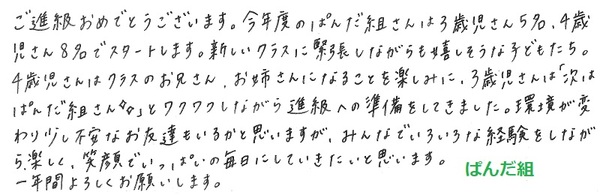 ご進級おめでとうございます。今年度のぱんだ組さんは3歳児さん5名、4歳
児さん8名でスタートします。新しいクラスに緊張しながらも嬉しそうな子どもたち。
4歳児さんはクラスのお兄さん、お姉さんになることを楽しみに、3歳児さんは「次は
ぱんだ組さん✨」とワクワクしながら進級への準備をしてきました。環境が変
わり少し不安なお友達もいるかと思いますが、みんなでいろいろな経験をしなが
ら、楽しく、笑顔でいっぱいの毎日にしていきたいと思います。
一年間よろしくお願いします。
ぱんだ組